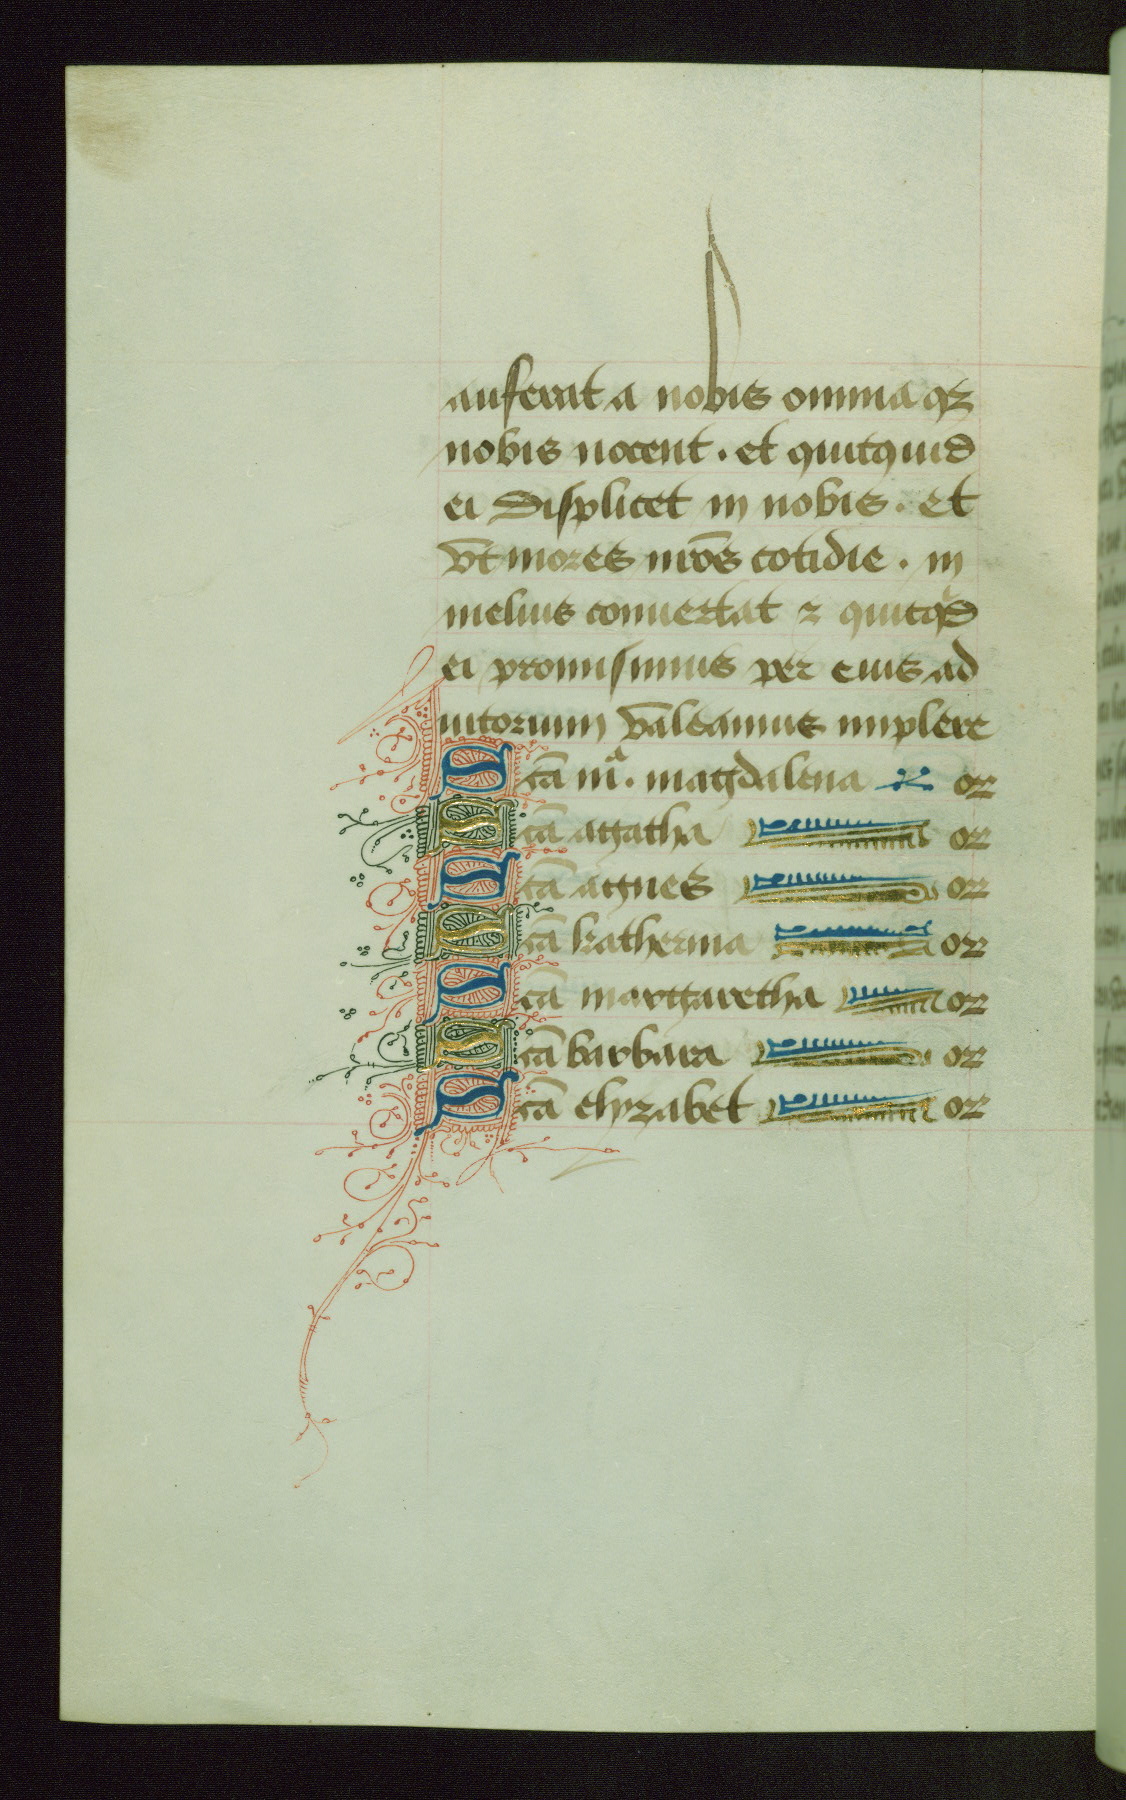 auferat a nobis omnia q̄
nobis nocent . et quitquid
ei displicet in nobis . et
vt mores nr̄os cotidie . in
melius conuertat ⁊ quitqͥd
ei promisimus per eius ad
iutorium valeamus implere
Scā mͣ . magdalena or
Scā agatha or
Scā agnes or
Scā katherina or
Scā margaretha or
Scā barbara or
Scā elyzabet or